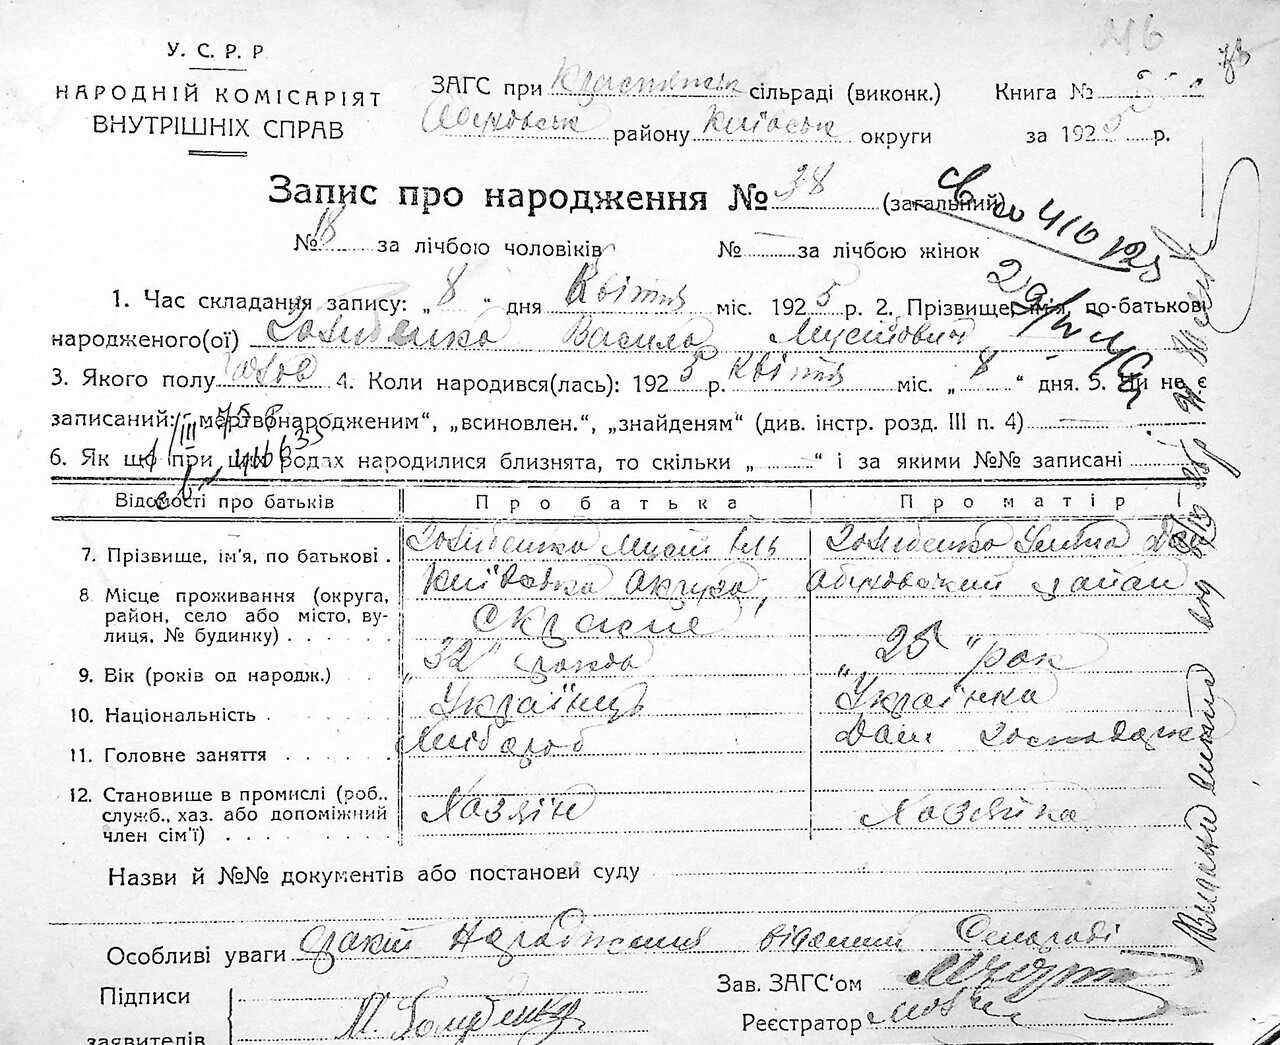 216
У. С. Р. Р.
НАРОДНІЙ КОМІСАРІЯТ
ВНУТРІШНІХ СПРАВ
ЗАГС при Краснянськ сільраді (виконк.) Книга № 5
Обуховськ району Київськ округи за 1925 р.
Запис про народження № 38 (загальний)
№ 18 за лічбою чоловіків № — за лічбою жінок
1. Час складання запису: „ 8 “ дня Квітня міс. 1925 р. 2. Прізвище, ім'я, по-батькові
народженого(ої) Голубенко Василь Мусійович
3. Якого полу чолов 4. Коли народився(лась): 1925 р. Квітня міс. „ 8 “ дня. 5. Чи не є
записаний: „мертвонародженим“, „всиновлен.“, „знайденям“ (див. інстр. розд. III п. 4)
6. Як що при цих родах народилися близнята, то скільки „ “ і за якими №№ записані
Відомості про батьків Про батька Про матір
7. Прізвище, ім'я, по батькові . Голубенко Мусій Голубенко
8 Місце проживання (округа, Київська округа, Обуховський район
район, село або місто, ву-
лиця, № будинку) . . . . . . С Красне
9. Вік (років од народж.) . . „32“ рока „25“ рок
10. Національність . . . . . . Українець Українка
11. Головне заняття . . . . . . Хлібороб Дом. господарк
12. Становище в промислі (роб.,
служб., хаз. або допоміжний Хазяїн Хазяйка
член сім'ї) . . . . . . . .
Назви й №№ документів або постанови суду
Особливі уваги народження Сельраді
Підписи
Зав. ЗАГС'ом
П. Голубенко
Реєстратор
заявителів